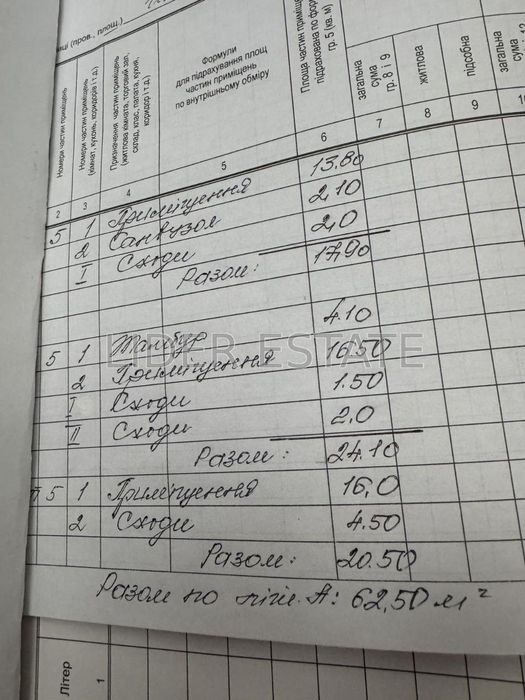 ці (пров., площ.)
Номери частин приміщень
Номери частин приміщень (кімнат, кухонь, коридорів і т.д.)
Призначення частин приміщень (житлова кімната, торговий зал, склад, клас, палата, кухня, коридор і т.д.)
Формули
для підрахування площ
частин приміщень
по внутрішньому обміру
Площа частин приміщень
підрахована по форм
гр. 5 (кв. м)
загальна сума гр. 8 і 9
житлова
підсобна
загальна сума
2 3 4 5 6 7 8 9 10
5 1 Приміщення 13.80
2 Санвузол 2,10
I Сходи 2,0
Разом: 17,90
5 1 Тамбур 4.10
2 Приміщення 16.50
I Сходи 1.50
II Сходи 2.0
Разом: 24.10
5 1 Приміщення 16,0
2 Сходи 4.50
Разом: 20.50
Разом по літ. А: 62,50 м²
Літер
1
LIDER ESTATE